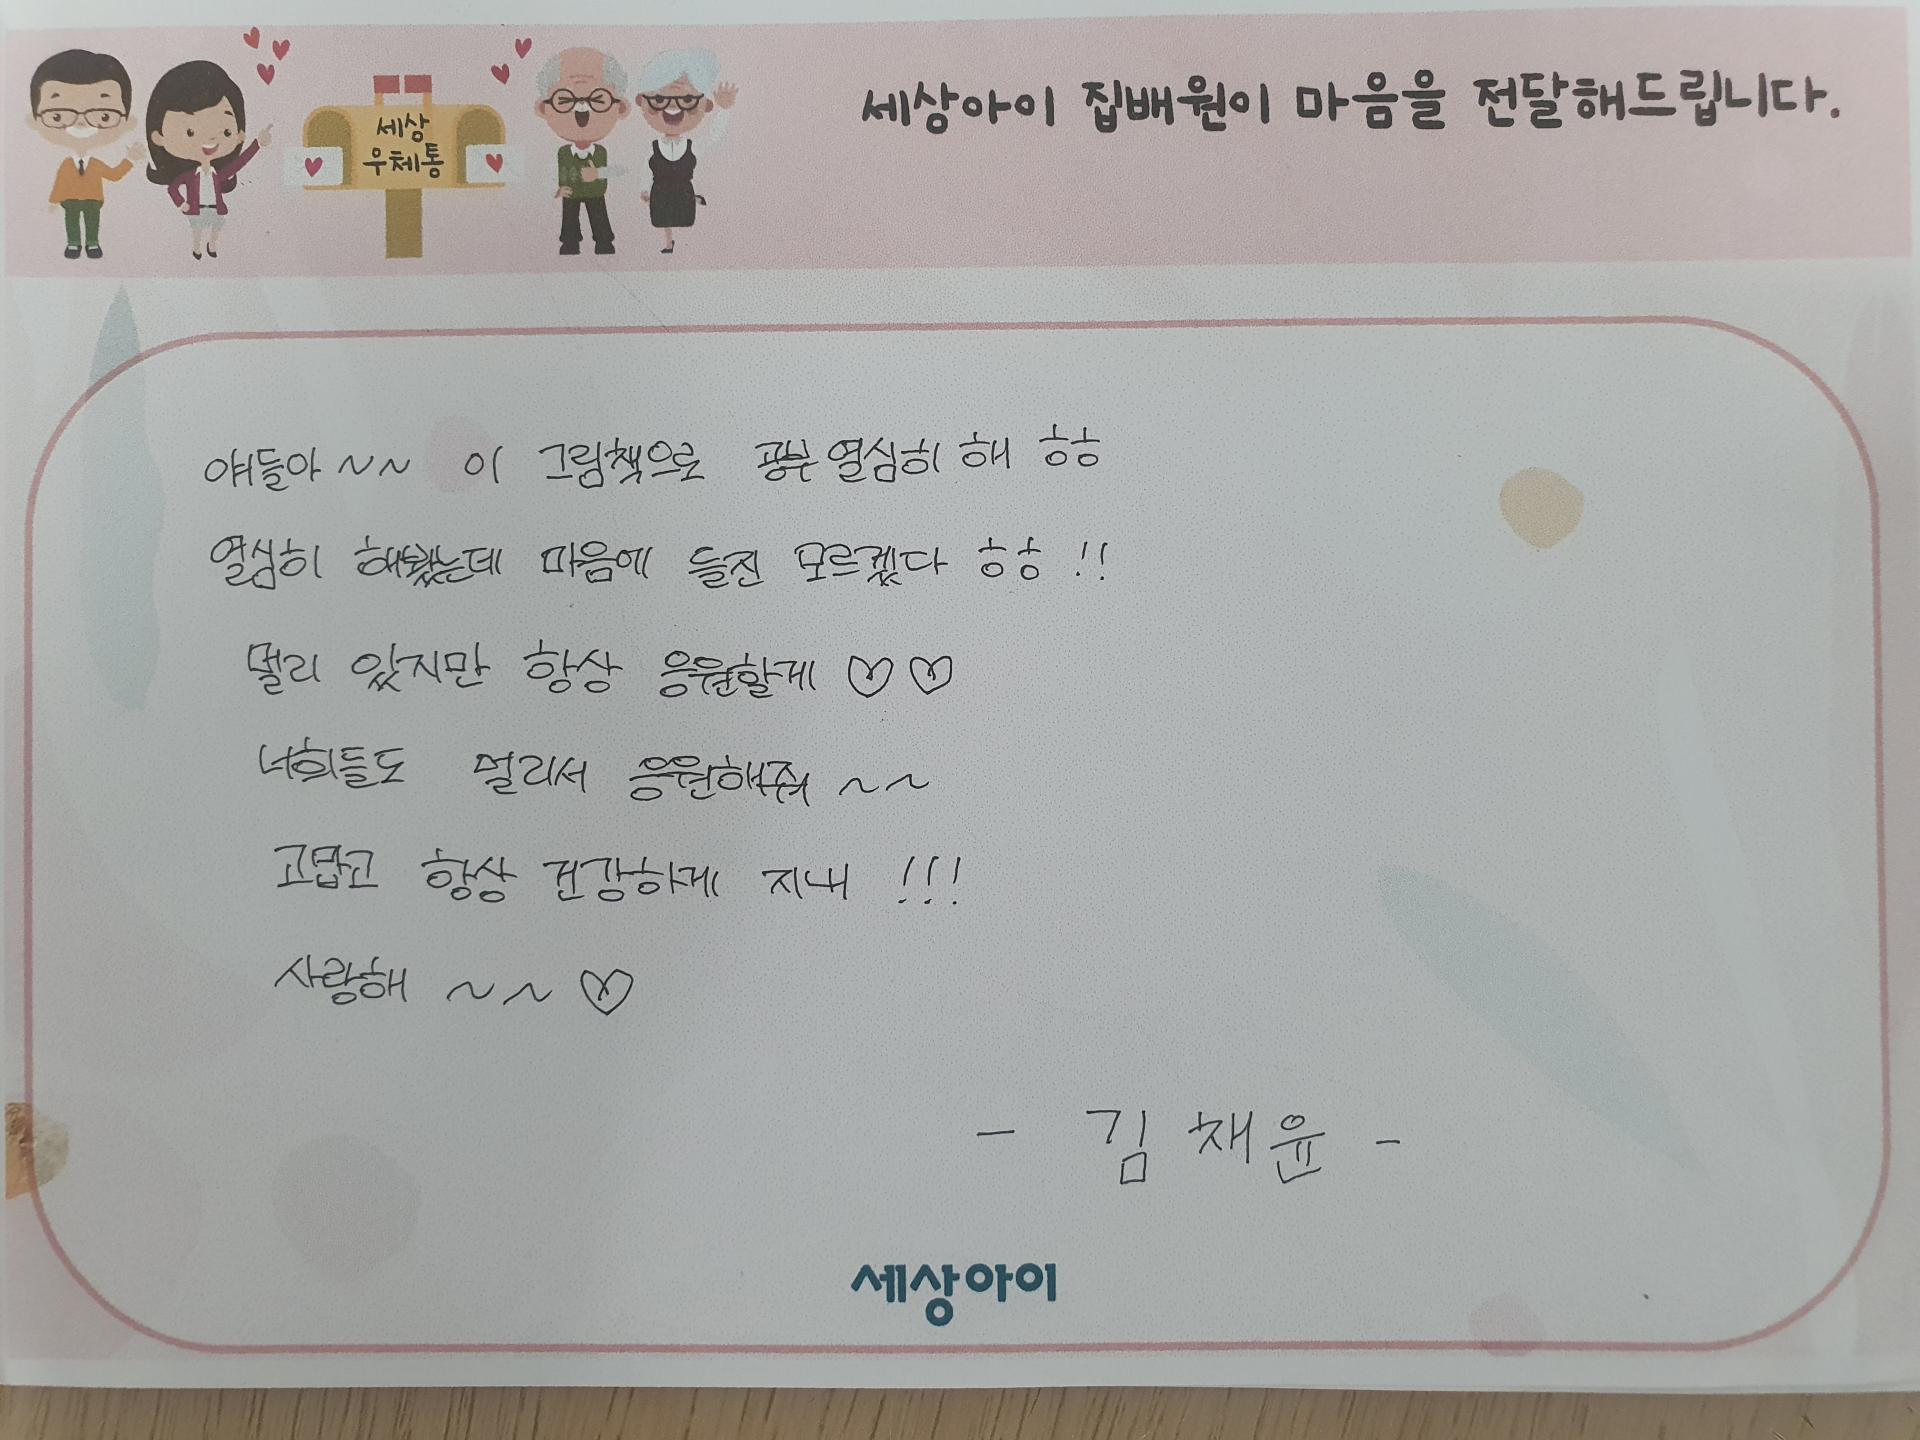 세상아이 집배원이 마음을 전달해드립니다.
세상
우체통
얘들아 ~~ 이 그림책으로 공부 열심히 해 ㅎㅎ
열심히 해봤는데 마음에 들진 모르겠다 ㅎㅎ !!
멀리 있지만 항상 응원할게 ♡♡
너희들도 멀리서 응원해줘 ~~
고맙고 항상 건강하게 지내 !!!
사랑해 ~~ ♡
- 김채윤 -
세상아이